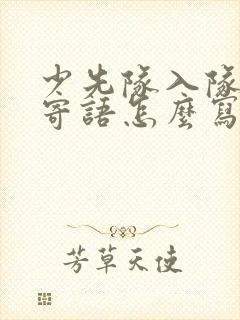 少先隊入隊
寄語怎麼寫
芳草天使